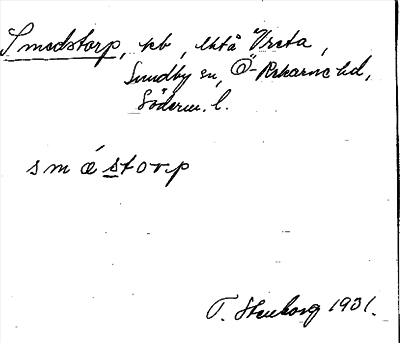 Smedstorp, kb, uktå Vreta,
Sundby sn, Ö-Rekarne hd,
Söderm. l.
sméstorp
T. Stenborg 1931.